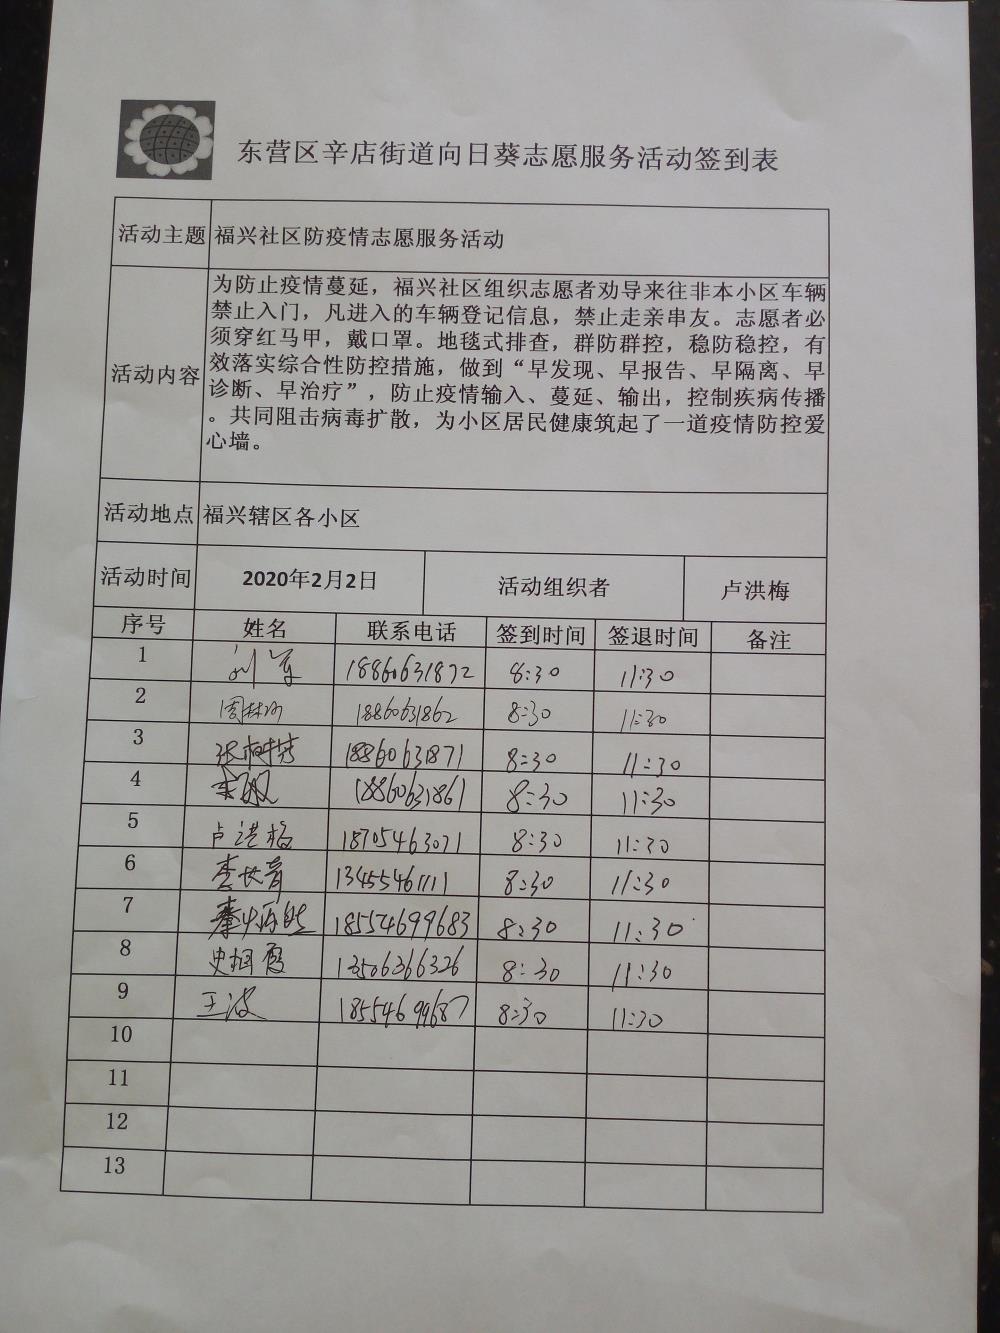 东营区辛店街道向日葵志愿服务活动签到表
活动主题 福兴社区防疫情志愿服务活动
活动内容
为防止疫情蔓延，福兴社区组织志愿者劝导来往非本小区车辆
禁止入门，凡进入的车辆登记信息，禁止走亲串友。志愿者必
须穿红马甲，戴口罩。地毯式排查，群防群控，稳防稳控，有
效落实综合性防控措施，做到“早发现、早报告、早隔离、早
诊断、早治疗”，防止疫情输入、蔓延、输出，控制疾病传播
。共同阻击病毒扩散，为小区居民健康筑起了一道疫情防控爱
心墙。
活动地点 福兴辖区各小区
活动时间 2020年2月2日 活动组织者 卢洪梅
序号 姓名 联系电话 签到时间 签退时间 备注
1 刘军 18860631872 8:30 11:30
2 18860631862 8:30 11:30
3 18860631871 8:30 11:30
4 18860631861 8:30 11:30
5 卢洪梅 18705463071 8:30 11:30
6 李长青 13455461111 8:30 11:30
7 18554699683 8:30 11:30
8 13506366326 8:30 11:30
9 王波 18554699687 8:30 11:30
10
11
12
13